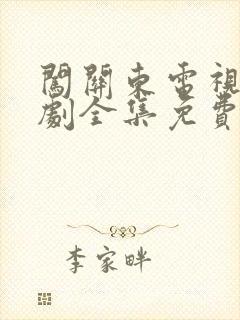 闖關東電視
劇全集免費
李家畔